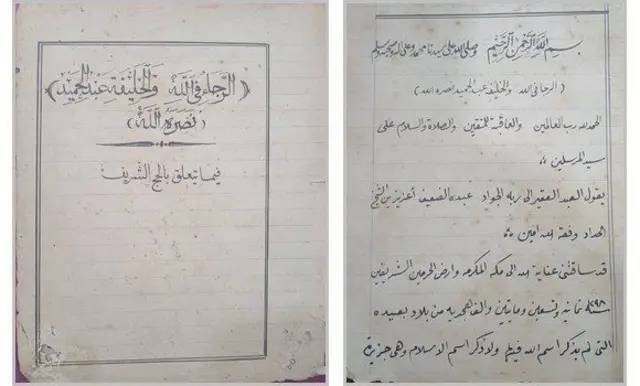 (الرجاء في الله والخليفة عبد الحميد)
(نصره الله)
فيما يتعلق بالحج الشريف
بسم الله الرحمن الرحيم وصلى الله على سيدنا محمد وعلى اله وصحبه وسلم
(الرجا في الله والخليفة عبد الحميد نصره الله)
الحمد لله رب العالمين والعاقبة للمتقين والصلاة والسلام على
سيد المرسلين
يقول العبد الفقير الى ربه الجواد عبده الضعيف أعزيز بن الشيخ
الحداد وفقه الله امين
قد ساقتنى عناية الله الى مكة المكرمه وارض الحرمين الشريفين
سنة ١٢٩٨ ثمانيه وتسعين ومايتين والف هجريه من بلاد بعيده
التى لم يذكر اسم الله فيها ولا ذكر اسم الاسلام وهى جزيرة